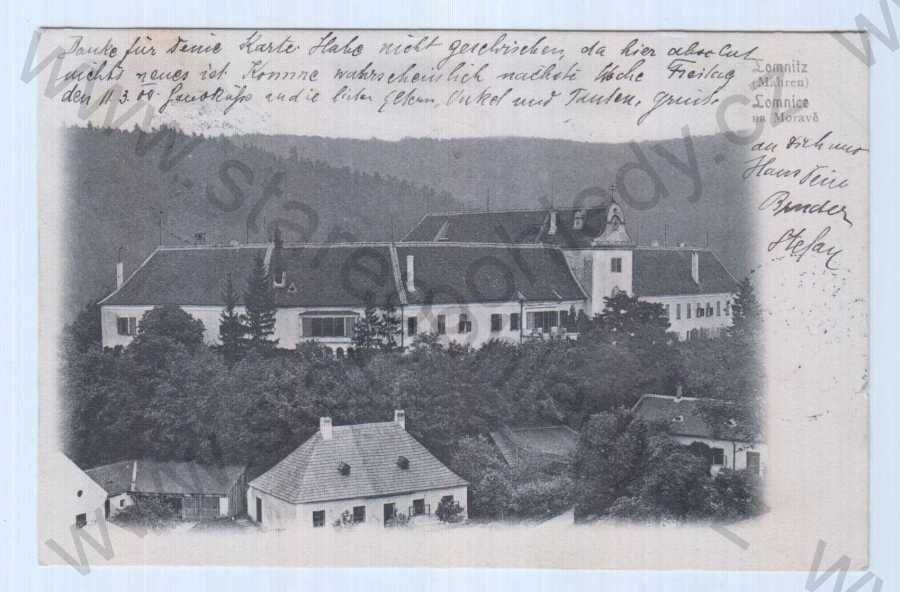 Danke für Deine Karte. Habe nicht geschrieben, da hier absolut
nichts neues ist. Komme wahrscheinlich nächste Woche Freitag
den 11.3.09. und die lieben Eltern, Onkel und Tanten, grüsst
Lomnitz
(Mähren)
Lomnice
na Moravě
an Dich und
Hans Dein
Bruder
Stefan
www.starepohledy.cz